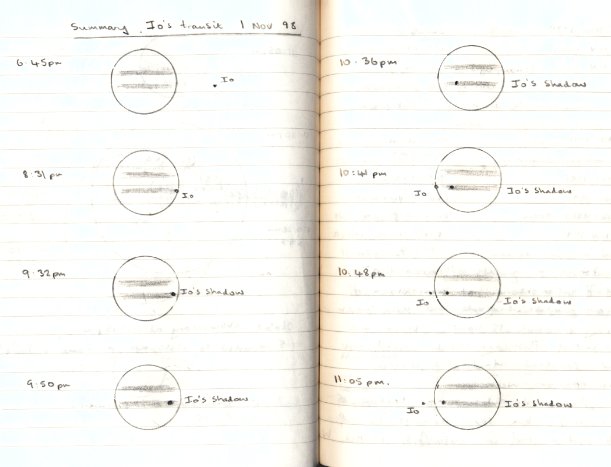 Summary. Io's transit 1 Nov 98
6.45pm
Io
8.31pm
Io
9.32pm
Io's Shadow
9.50pm
Io's Shadow
10.36pm
Io's Shadow
10:41pm
Io
Io's Shadow
10.48pm
Io
Io's Shadow
11.05pm.
Io
Io's Shadow